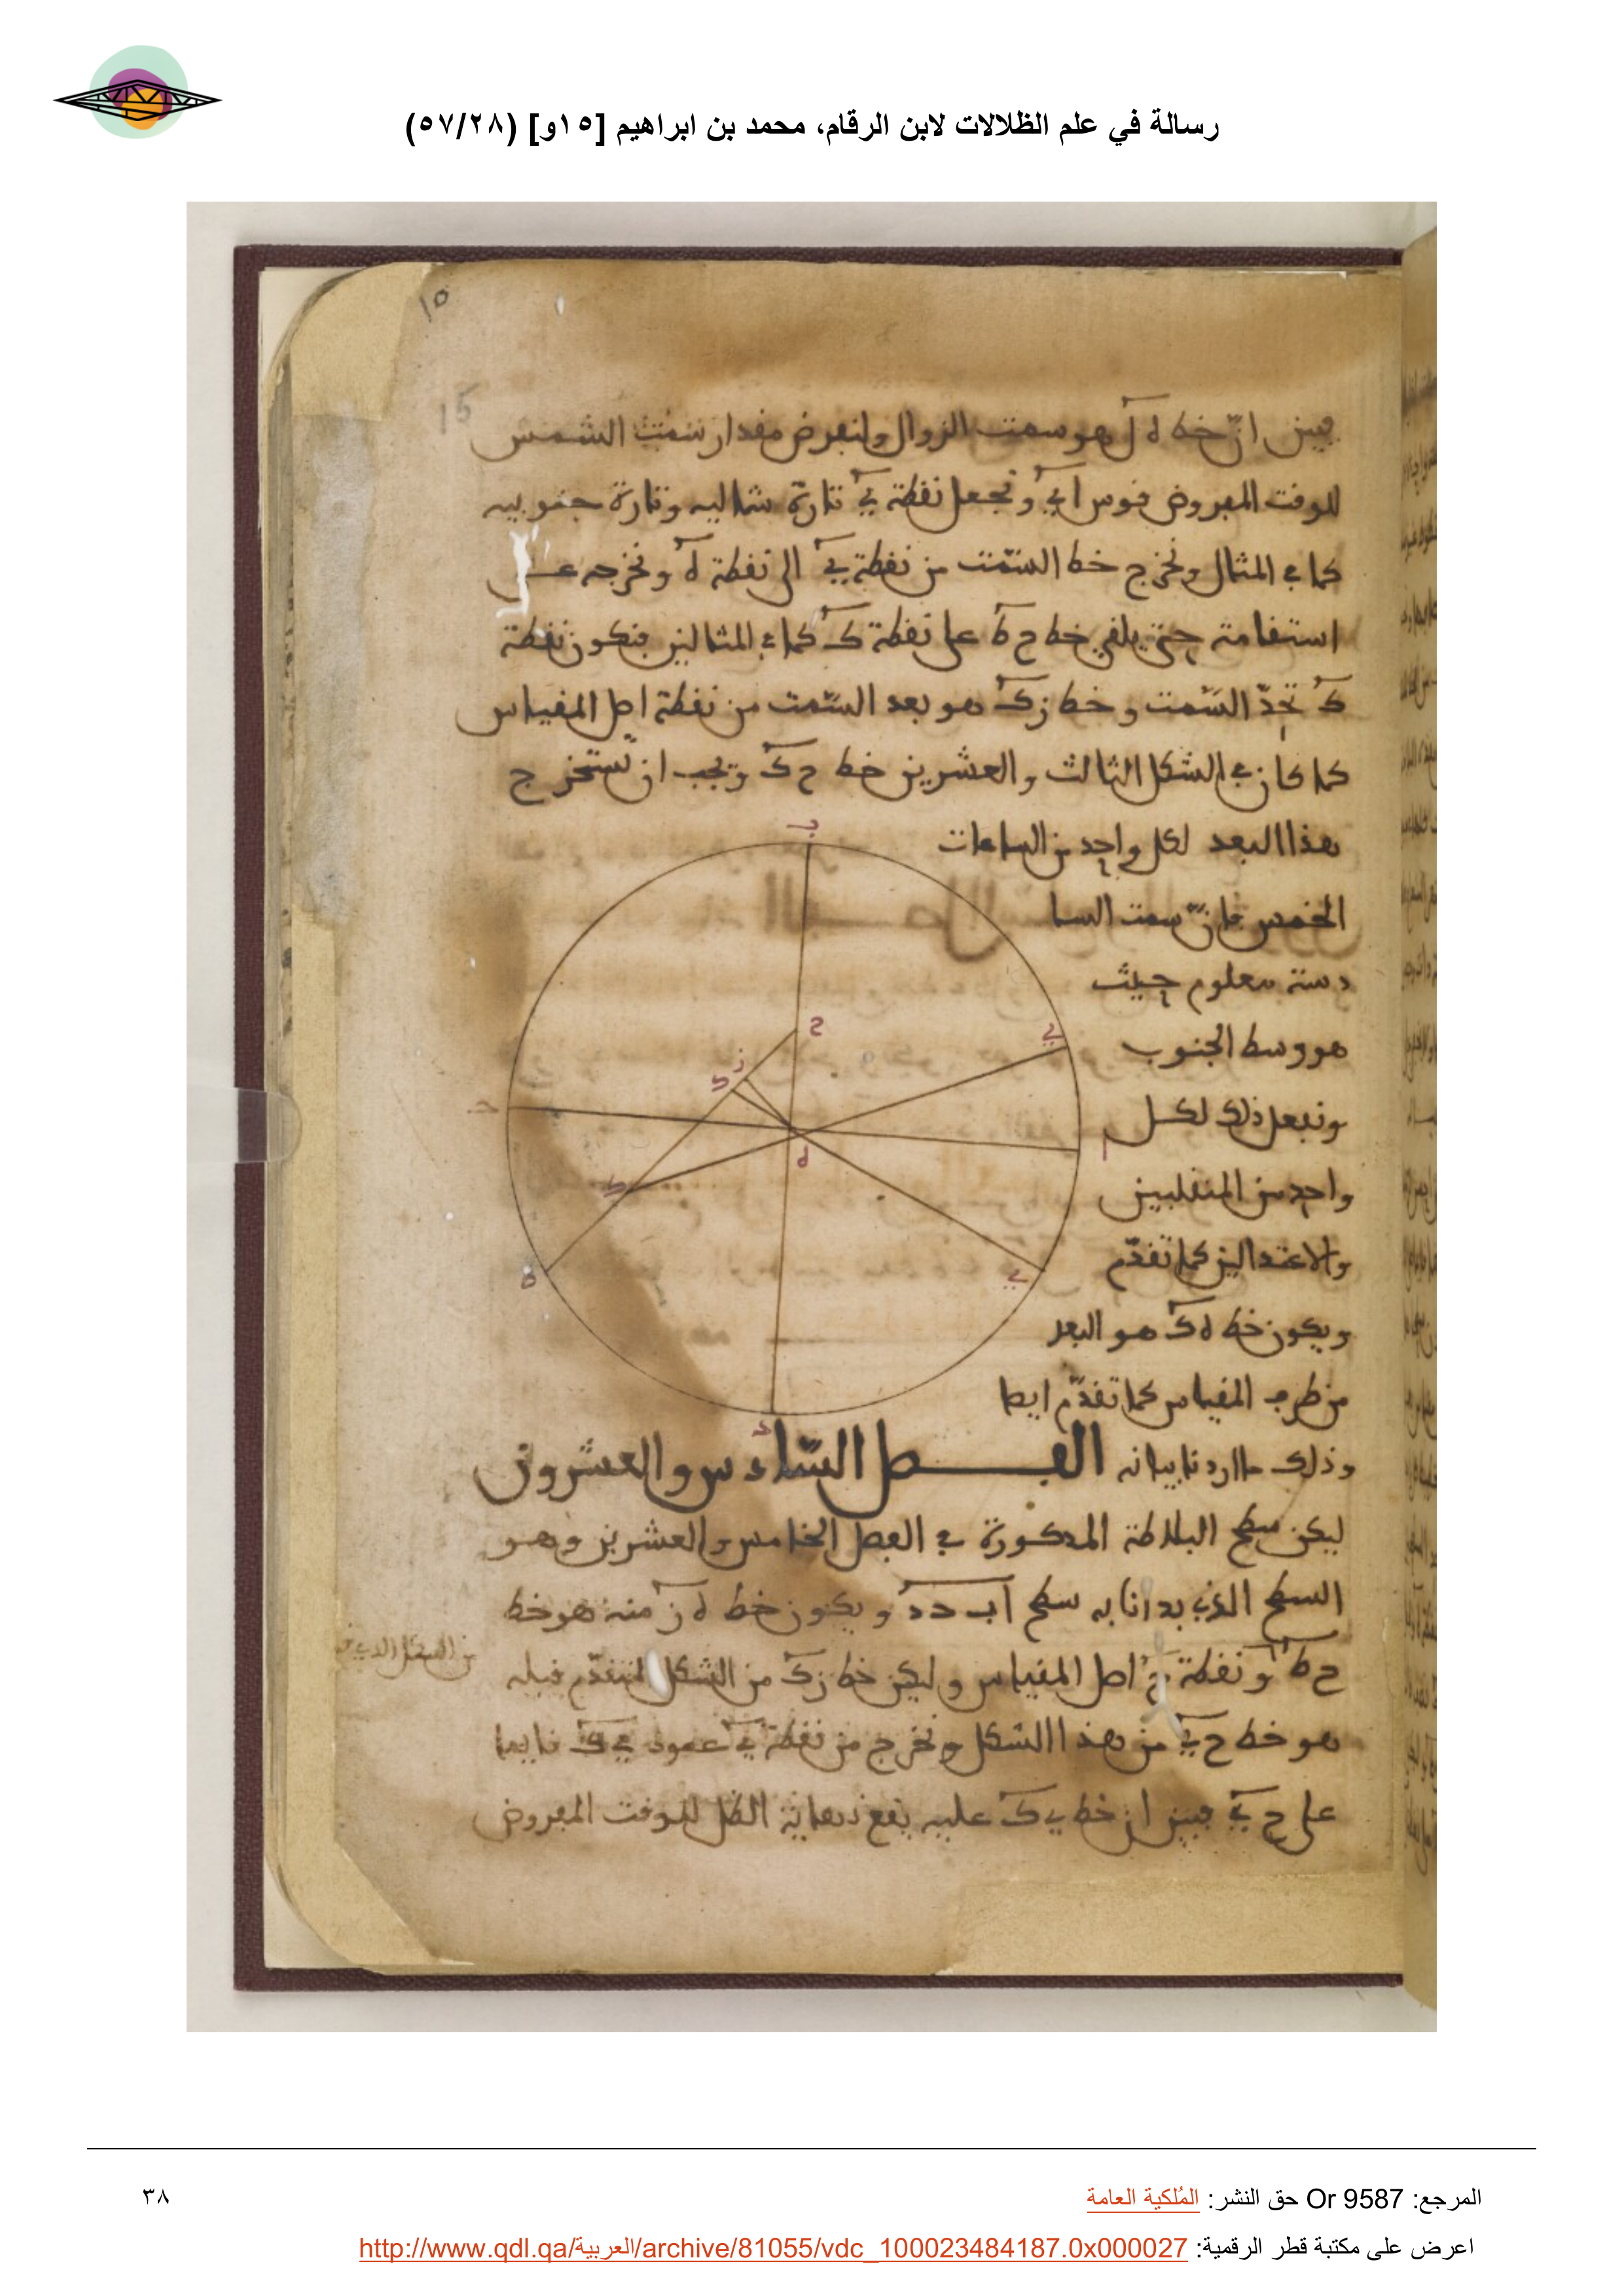 رسالة في علم الظلالات لابن الرقام، محمد بن ابراهيم [١٥و] (٥٧/٢٨)
١٥
15
فبين ان خط ه ل هو سمت الزوال ولنفرض مقدار سمت الشمس
للوقت المفروض قوس ا ي ونجعل نقطة ي تارة شماليه وتارة جنوبيه
كما في المثال ونخرج خط السمت من نقطة ي الى نقطة ه ونخرجه على
استقامة حتى يلقى خط ح ط على نقطة ك كما في المثالين فتكون نقطة
ك تحد السمت وخط زك هو بعد السمت من نقطة اصل المقياس
كما كان في الشكل الثالث والعشرين خط ح ك ويجب ان نستخرج
هذا البعد لكل واحد من الساعات
الخمس فان سمت السا
دسة معلوم حيث
هو وسط الجنوب
ونفعل ذلك لكل
واحد من المنقلبين
والاعتدالين كما تقدم
ويكون خط ه ك هو البعد
من طرف المقياس كما تقدم ايضا
وذلك ما اردنا بيانه الفصل السادس والعشرون
ليكن سطح البلاطة المذكورة في الفصل الخامس والعشرين وهو
السطح الذي بدانا به سطح اب حد ويكون خط ه ز منه هو خط
ح ط ونقطة اصل المقياس وليكن خط زك من الشكل المتقدم قبله
من الشكل الذي
هو خط ح ي من هذا الشكل ونخرج من نقطة ي عمود ي ك قايما
على ح ي فبين ان خط ي ك عليه يقع نهاية الظل للوقت المفروض
ب
ح
ي
ز
ك
ا
ه
ك
ط
ي
د
المرجع: Or 9587 حق النشر: المُلكية العامة
٣٨
اعرض على مكتبة قطر الرقمية: http://www.qdl.qa/العربية/archive/81055/vdc_100023484187.0x000027